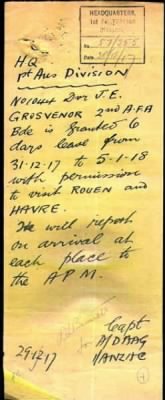 HEADQUARTERS,
1st
No 57/255
Date /12/17
HQ
1st Aus DIVISION
No10601 Dvr J.E.
GROSVENOR 2nd A.F.A
Bde is granted 6
days leave from
31.12.17 to 5-1-18
with permission
to visit ROUEN and
HAVRE.
He will report
on arrival at
each place to
the A.P.M.
Capt
for
A/DAAG
29.12.17 I ANZAC